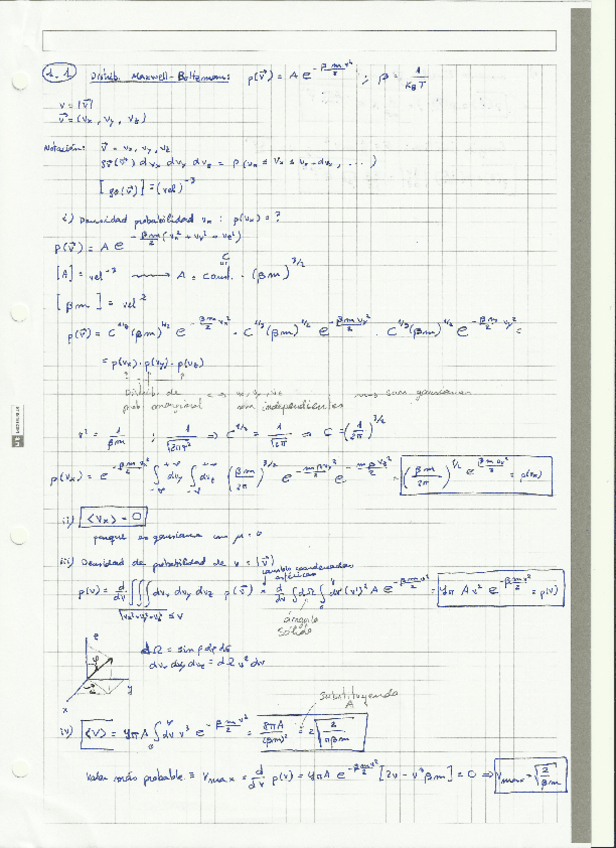 1.1 Distrib. Maxwell-Boltzmann: p(v⃗) = A e^{-βmv²/2} ; β = 1/(K_B T)
v = |v⃗|
v⃗ = (vx, vy, vz)
Notación: v⃗ = vx, vy, vz
(v⃗) dvx dvy dvz = P(vx ≤ vx ≤ vx - dvx, ...)
[(v⃗)] = (vel)^{-3}
i) Densidad probabilidad vx : p(vx) = ?
p(v⃗) = A e^{-βm/2 (vx² + vy² + vz²)}
[A] = vel^{-3} → A = const. · (βm)^{3/2}
C
[βm] = vel^{2}
p(v⃗) = C^{1/3} (βm)^{1/2} e^{-βm/2 vx²} · C^{1/3} (βm)^{1/2} e^{-βm/2 vy²} · C^{1/3} (βm)^{1/2} e^{-βm/2 vy²} =
= p(vx) · p(vy) · p(vz)
Distrib. de son gaussianas
prob marginal son independientes
σ² = 1/(βm) ; 1/√(2πσ²) ⇒ C^{1/3} = 1/√(2π) ⇒ C = (1/2π)^{3/2}
p(vx) = e^{-βm vx²/2} ∫ dvy ∫ dvz (βm/2π)^{3/2} e^{-mβvy²/2} e^{-mβvz²/2} = (βm/2π)^{1/2} e^{βm vx²/2} = p(vx)
ii) ⟨vx⟩ = 0
porque es gaussiana con μ = 0
iii) Densidad de probabilidad de v = |v⃗|
cambio coordenadas
esféricas
p(v) = d/dv ∭ dvx dvy dvz p(v⃗) = d/dv ∫ dΩ ∫₀^v dv' (v')² A e^{-βmv²/2} = 4π A v² e^{-βmv²/2} = p(v)
√(vx²+vy²+vz²) ≤ v
ángulo
sólido
z
dvx dvy dvz = dΩ v² dv
y
x
sustituyendo
A
iv) ⟨v⟩ = 4πA ∫₀ dv v³ e^{-βm/2 v²} = 8πA/(βm)² = 2 √(2/(πβm))
Valor más probable ≡ Vmax = d/dv p(v) = 4πA e^{-βmv²/2} [2v - v³βm] = 0 ⇒ Vmax = √(2/(βm))